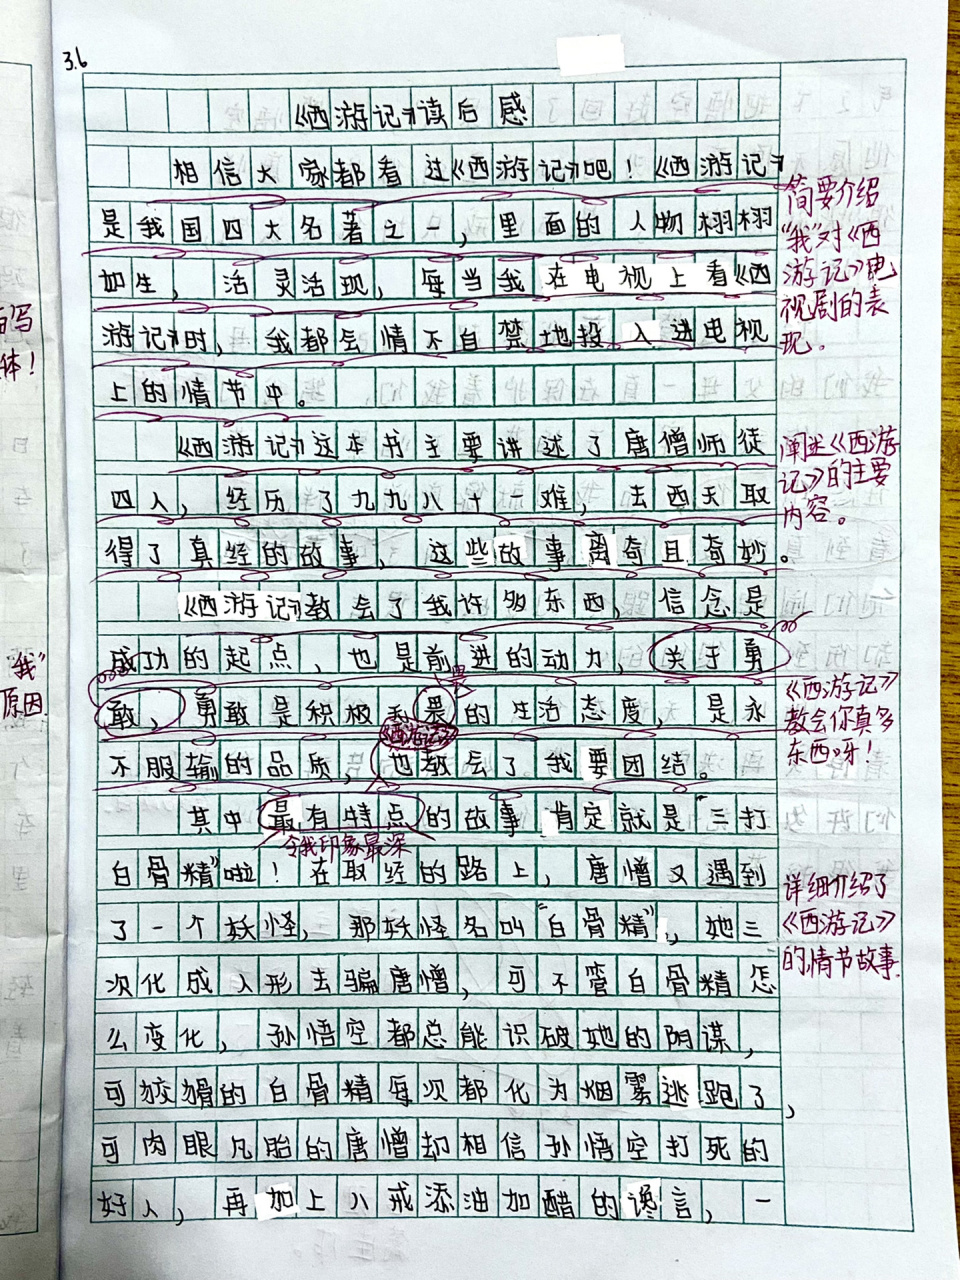 3.6
《西游记》读后感
相信大家都看过《西游记》吧！《西游记》
是我国四大名著之一，里面的人物栩栩
如生，活灵活现，每当我在电视上看《西
游记》时，我都会情不自禁地投入进电视
上的情节中。
《西游记》这本书主要讲述了唐僧师徒
四人，经历了九九八十一难，去西天取
得了真经的故事，这些故事离奇且奇妙。
《西游记》教会了我许多东西，信念是
成功的起点，也是前进的动力，关于勇
敢，勇敢是积极和的生活态度，是永
不服输的品质，也教会了我要团结。
《西游记》
其中最有特点的故事肯定就是“三打
令我印象最深
白骨精”啦！在取经的路上，唐僧又遇到
了一个妖怪，那妖怪名叫“白骨精”，她三
次化成人形去骗唐僧，可不管白骨精怎
么变化，孙悟空都总能识破她的阴谋，
可狡猾的白骨精每次都化为烟雾逃跑了，
可肉眼凡胎的唐僧却相信孙悟空打死的
好人，再加上八戒添油加醋的谗言，一
简要介绍
“我”对《西
游记》电
视剧的表
现。
阐述《西游
记》的主要
内容。
《西游记》
教会你真多
东西呀！
详细介绍了
《西游记》
的情节故事
写
体！
我”
原因